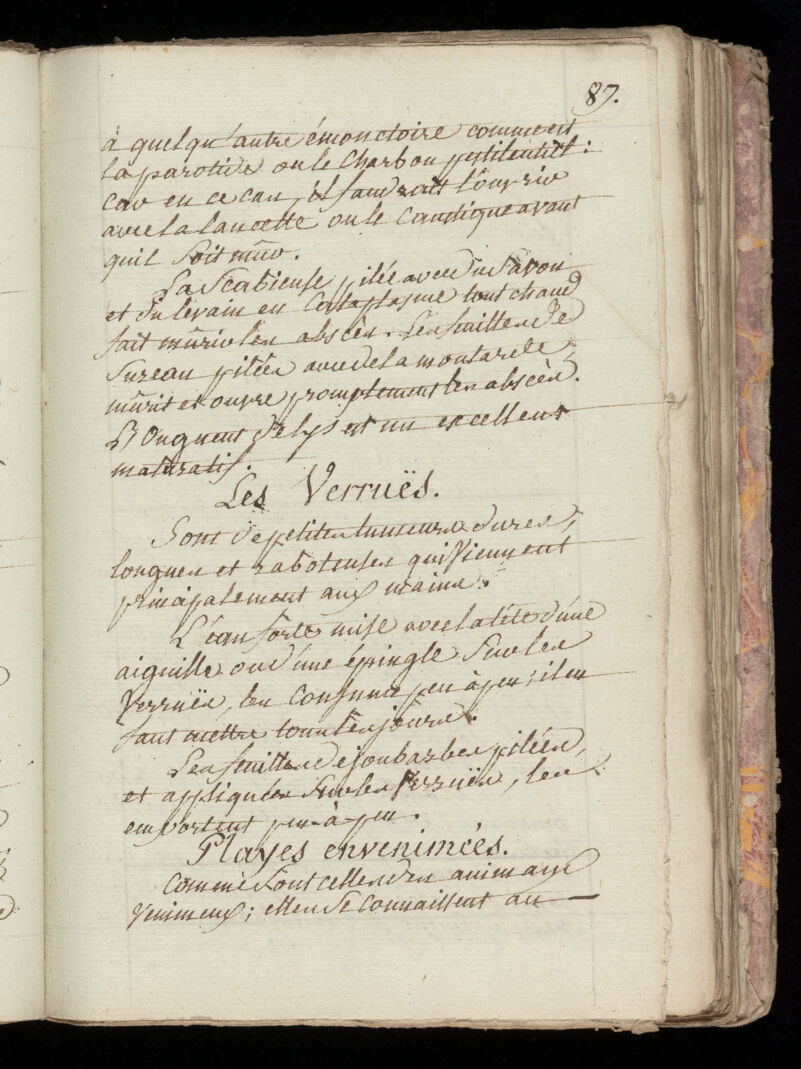 87.
à quelqu'autre émonctoire comme est
la parotide ou le charbon pestilentiel :
car en ce cas, il faudrait l'ouvrir
avec la lancette ou le caustique avant
quil soit mûr.
La Scabieuse pilée avec du Savon
et du levain en Cataplasme tout chaud
fait mûrir les abscès. Les feuilles de
Sureau pilées avec de la moutarde,
mûrit et ouvre promptement les abscès.
L'Onguent de lys est un excellent
maturatif.
Les Verruës.
Sont de petites tumeurs dures,
longues et raboteuses qui viennent
principalement aux mains.
L'eau forte mise avec la tête d'une
aiguille ou d'une épingle Sur les
Verruës, les consume peu à peu ; il en
faut mettre tous les jours.
Les feuilles de joubarbes pilées,
et appliquées Sur les Verruës, les
emportent peu-à-peu.
Playes envenimées.
Comme Sont celles des animaux
venimeux ; elles Se connaissent au —